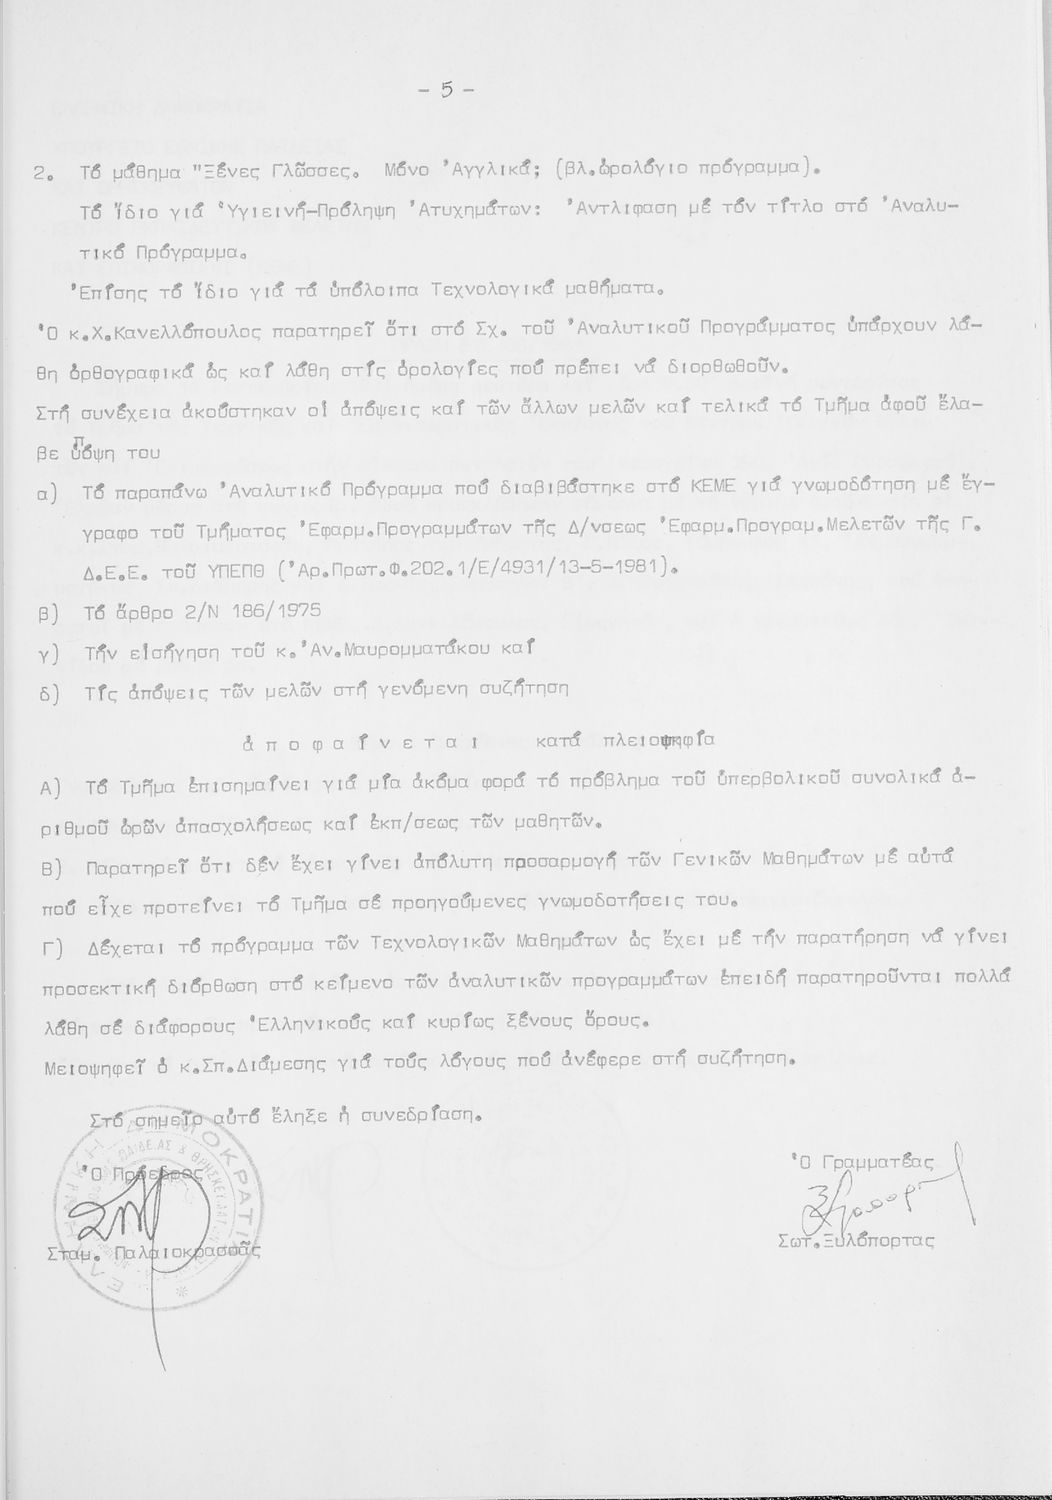 - 5 -
2. Τό μάθημα "Ξένες Γλῶσσες. Μόνο Ἀγγλικά; (βλ.ὡρολόγιο πρόγραμμα).
Τό ἴδιο γιά Ὑγιεινή-Πρόληψη Ἀτυχημάτων: Ἀντίφαση μέ τόν τίτλο στό Ἀναλυ-
τικό Πρόγραμμα.
Ἐπίσης τό ἴδιο γιά τά ὑπόλοιπα Τεχνολογικά μαθήματα.
Ὁ κ.Χ.Κανελλόπουλος παρατηρεῖ ὅτι στό Σχ. τοῦ Ἀναλυτικοῦ Προγράμματος ὑπάρχουν λά-
θη ὀρθογραφικά ὡς καί λάθη στίς ὁρολογίες πού πρέπει νά διορθωθοῦν.
Στή συνέχεια ἀκούστηκαν οἱ ἀπόψεις καί τῶν ἄλλων μελῶν καί τελικά τό Τμῆμα ἀφοῦ ἔλα-
βε ὑπόψη του
α) Τό παραπάνω Ἀναλυτικό Πρόγραμμα πού διαβιβάστηκε στό ΚΕΜΕ γιά γνωμοδότηση μέ ἔγ-
γραφο τοῦ Τμήματος Ἐφαρμ.Προγραμμάτων τῆς Δ/νσεως Ἐφαρμ.Προγραμ.Μελετῶν τῆς Γ.
Δ.Ε.Ε. τοῦ ΥΠΕΠΘ (Ἀρ.Πρωτ.Φ.202.1/Ε/4931/13-5-1981).
β) Τό ἄρθρο 2/Ν 186/1975
γ) Τήν εἰσήγηση τοῦ κ.Ἀν.Μαυρομματάκου καί
δ) Τίς ἀπόψεις τῶν μελῶν στή γενόμενη συζήτηση
ἀ π ο φ α ί ν ε τ α ι κατά πλειοψηφία
Α) Τό Τμῆμα ἐπισημαίνει γιά μία ἀκόμα φορά τό πρόβλημα τοῦ ὑπερβολικοῦ συνολικά ἀ-
ριθμοῦ ὡρῶν ἀπασχολήσεως καί ἐκπ/σεως τῶν μαθητῶν.
Β) Παρατηρεῖ ὅτι δέν ἔχει γίνει ἀπόλυτη προσαρμογή τῶν Γενικῶν Μαθημάτων μέ αὐτά
πού εἶχε προτείνει τό Τμῆμα σέ προηγούμενες γνωμοδοτήσεις του.
Γ) Δέχεται τό πρόγραμμα τῶν Τεχνολογικῶν Μαθημάτων ὡς ἔχει μέ τήν παρατήρηση νά γίνει
προσεκτική διόρθωση στό κείμενο τῶν ἀναλυτικῶν προγραμμάτων ἐπειδή παρατηροῦνται πολλά
λάθη σέ διάφορους Ἑλληνικούς καί κυρίως ξένους ὅρους.
Μειοψηφεῖ ὁ κ.Σπ.Διάμεσης γιά τούς λόγους πού ἀνέφερε στή συζήτηση.
Στό σημεῖο αὐτό ἔληξε ἡ συνεδρίαση.
Ὁ Πρόεδρος
Σταμ. Παλαιοκρασσᾶς
Ὁ Γραμματέας
Σωτ.Ξυλόπορτας